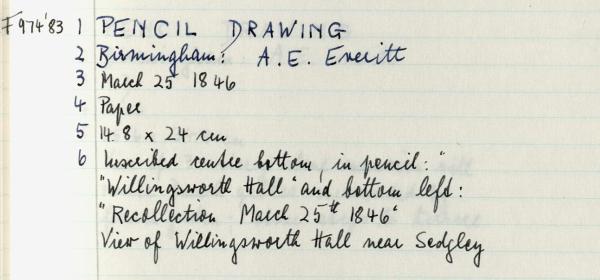 F 974'83 1 PENCIL DRAWING
2 Birmingham: A.E. Everitt
3 March 25 1846
4 Paper
5 14.8 x 24 cm
6 Inscribed centre bottom, in pencil: "
"Willingsworth Hall" and bottom left:
"Recollection March 25th 1846"
View of Willingsworth Hall near Sedgley